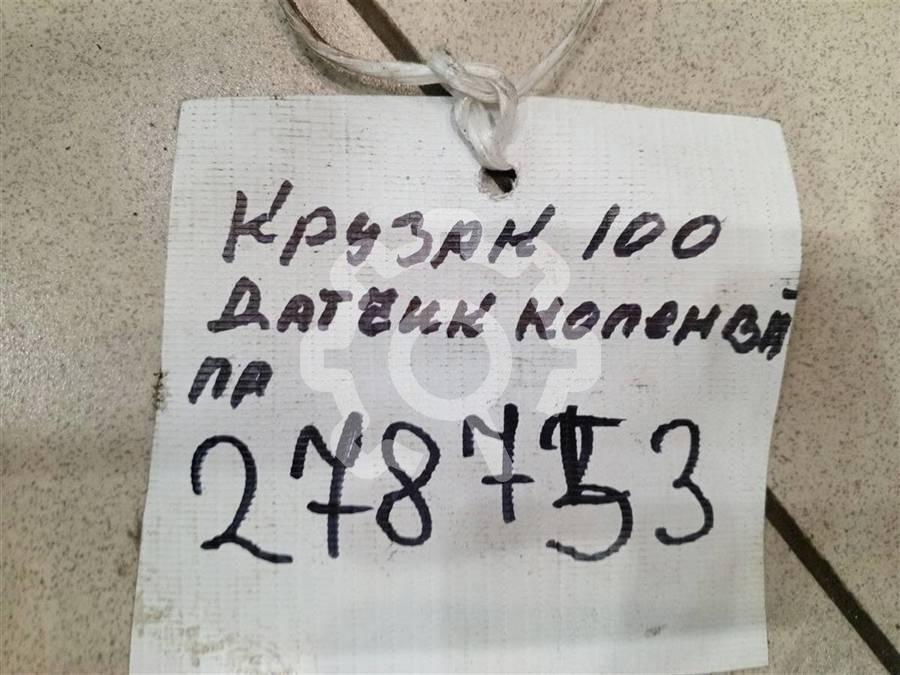 Крузак 100
Датчик коленва
ла
278753